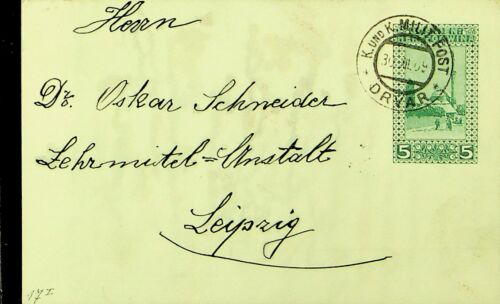 Herrn
Dr. Oskar Schneider
Lehrmittel=Anstalt
Leipzig
K. UND K. MILIT. POST
DRVAR
5 5
17 I